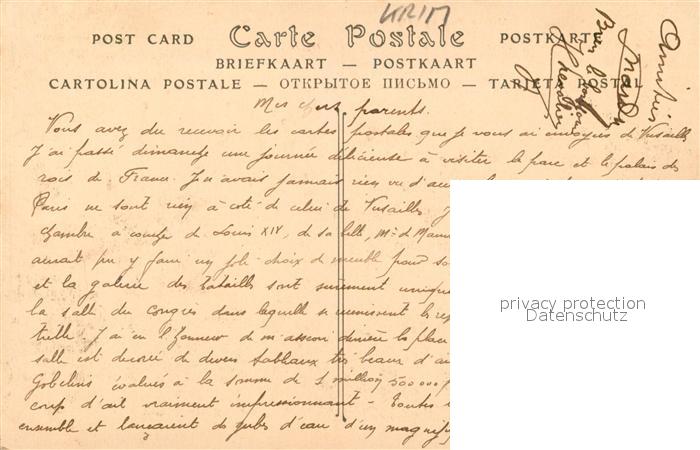 KRIM
POST CARD Carte Postale POSTKARTE
BRIEFKAART — POSTKAART
CARTOLINA POSTALE — ОТКРЫТОЕ ПИСЬМО — TARJETA POSTAL
Mes chers parents.
Vous avez du recevoir les cartes postales que je vous ai envoyées de Versailles
J'ai passé dimanche une journée délicieuse à visiter le parc et le palais des
rois de France. Je n'avais jamais rien vu d'aussi
Paris ne sont rien à côté de celui de Versailles.
chambre à coucher de Louis XIV, de sa belle, Mme de
aurait pu y faire un joli choix de meuble pour
et la galerie des batailles sont surement
la salle du congrès dans laquelle se réunissent les
J'ai eu l'honneur de m'asseoir derrière la place
salle est décorée de divers tableaux très beaux
Gobelins évalués à la somme de 1 million 500 000
coup d'œil vraiment impressionnant - Toutes
ensemble et lançaient des jubes d'eau d'un
Amitiés
privacy protection
Datenschutz